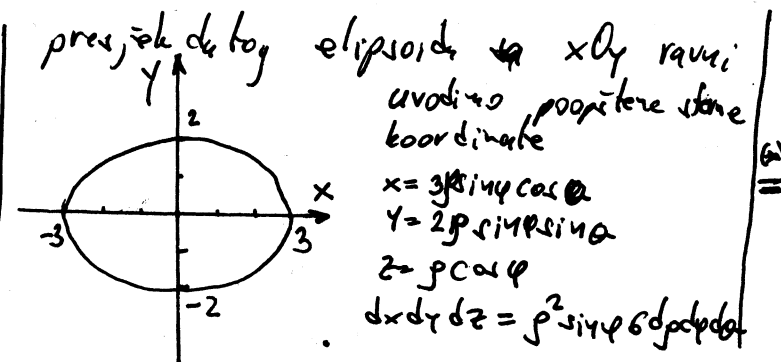 presjek datog elipsoida sa xOy ravni
uvodimo poopštene sferne
koordinate
x = 3ρ sinφ cos θ
y = 2ρ sinφ sinθ
z = ρ cos φ
dxdydz = ρ² sinφ 6 dρdφdθ
Y
2
X
-3
3
-2